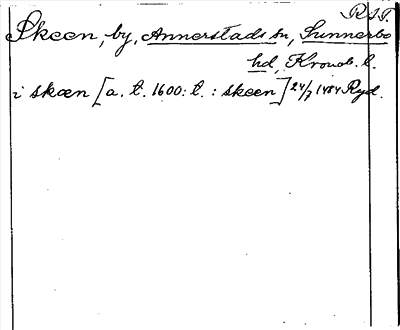 R.S.T.
Skeen, by, Annerstads sn, Sunnerbo
hd, Kronob. l.
i skæn [a. t. 1600: t. : skeen] 24/7 1484 Ryd.